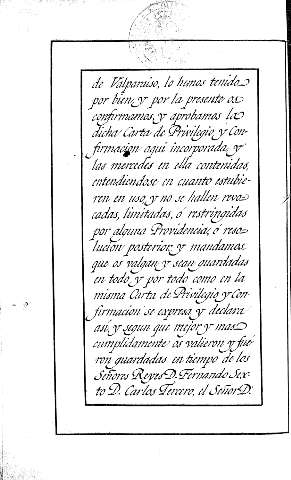 de Valparaiso, lo hemos tenido
por bien, y por la presente os
confirmamos, y aprobamos la
dicha Carta de Privilegio, y Con-
firmacion aqui incorporada, y
las mercedes en ella contenidas,
entendiendose en cuanto estubie-
ren en uso, y no se hallen revo-
cadas, limitadas, ó restringidas
por alguna Providencia, ó reso-
lucion posterior, y mandamos
que os valgan y sean guardadas
en todo, y por todo como en la
misma Carta de Privilegio, y Con-
firmacion se expresa, y declara
asi, y segun que mejor, y mas
cumplidamente os valieron y fue-
ron guardadas en tiempo de los
Señores Reyes D. Fernando Sex-
to D. Carlos Tercero, el Señor D.